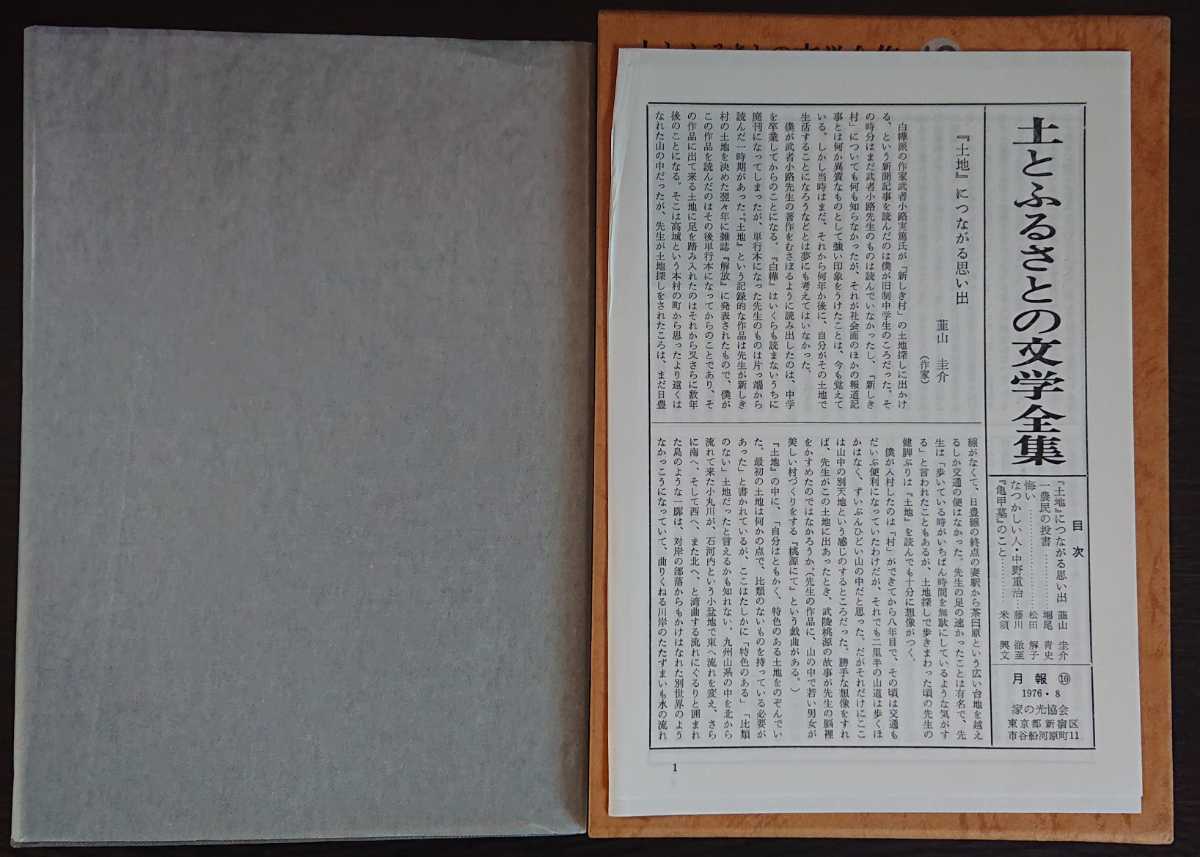 土とふるさとの文学全集
目次
『土地』につながる思い出 韮山 圭介
一農民の投書 堀尾 青史
悔い 松田 解子
なつかしい人・中野重治 藤川 徹至
『亀甲墓』のこと 米須 興文
月報⑩
1976・8
家の光協会
東京都新宿区
市谷船河原町11
『土地』につながる思い出
韮山 圭介
(作家)
白樺派の作家武者小路実篤氏が「新しき村」の土地探しに出かけ
る、という新聞記事を読んだのは僕が旧制中学生のころだった。そ
の時分はまだ武者小路先生のものは読んでいなかったし、「新しき
村」についても何も知らなかったが、それが社会面のほかの報道記
事とは何か異質なものとして強い印象をうけたことは、今も覚えて
いる。しかし当時はまだ、それから何年か後に、自分がその土地で
生活することになろうなどとは夢にも考えてはいなかった。
僕が武者小路先生の著作をむさぼるように読み出したのは、中学
を卒業してからのことになる。『白樺』はいくらも読まないうちに
廃刊になってしまったが、単行本になった先生のものは片っ端から
読んだ一時期があった。『土地』という記録的な作品は先生が新しき
村の土地を決めた翌々年に雑誌『解放』に発表されたもので、僕が
この作品を読んだのはその後単行本になってからのことであり、そ
の作品に出て来る土地に足を踏み入れたのはそれから又さらに数年
後のことになる。そこは高城という本村の町から思ったより遠くは
なれた山の中だったが、先生が土地探しをされたころは、まだ日豊
線がなくて、日豊線の終点の妻駅から茶臼原という広い台地を越え
るしか交通の便はなかった。先生の足の速かったことは有名で、先
生は「歩いている時がいちばん時間を無駄にしているような気がす
る」と言われたこともあるが、土地探しで歩きまわった頃の先生の
健脚ぶりは『土地』を読んでも十分に想像がつく。
僕が入村したのは「村」ができてから八年目で、その頃は交通も
だいぶ便利になっていたわけだが、それでも二里半の山道は歩くほ
かはなく、ずいぶんひどい山の中だと思った。だがそれだけにここ
は山中の別天地という感じのするところだった。勝手な想像をすれ
ば、先生がこの土地に出あったとき、武陵桃源の故事が先生の脳裡
をかすめたのではなかろうか。(先生の作品に、山の中で若い男女が
美しい村づくりをする『桃源にて』という戯曲がある。)
『土地』の中に、「自分はともかく、特色のある土地をのぞんでい
た。最初の土地は何かの点で、比類のないものを持っている必要が
あった」と書かれているが、ここはたしかに「特色のある」「比類
のない」土地だったと言えるかも知れない。九州山系の中を北から
流れて来た小丸川が、石河内という小盆地で東へ流れを変え、さら
に南へ、そして西へ、また北へ、と湾曲する流れにぐるりと囲まれ
た島のような一廓は、対岸の部落からもかけはなれた別世界のよう
なかっこうになっていて、曲りくねる川岸のたたずまいも水の流れ
1